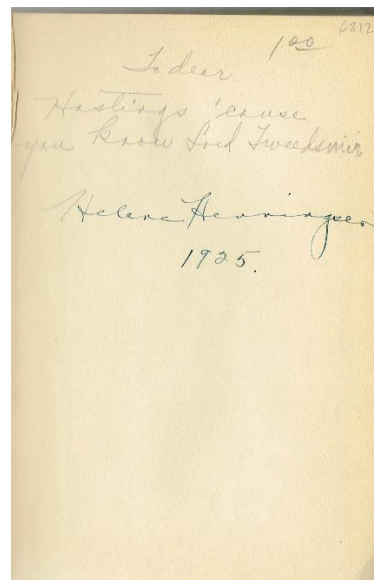 6812
1 00
To dear
Hastings 'cause
you know Lord Tweedsmir
Helene Henningsen
1925.